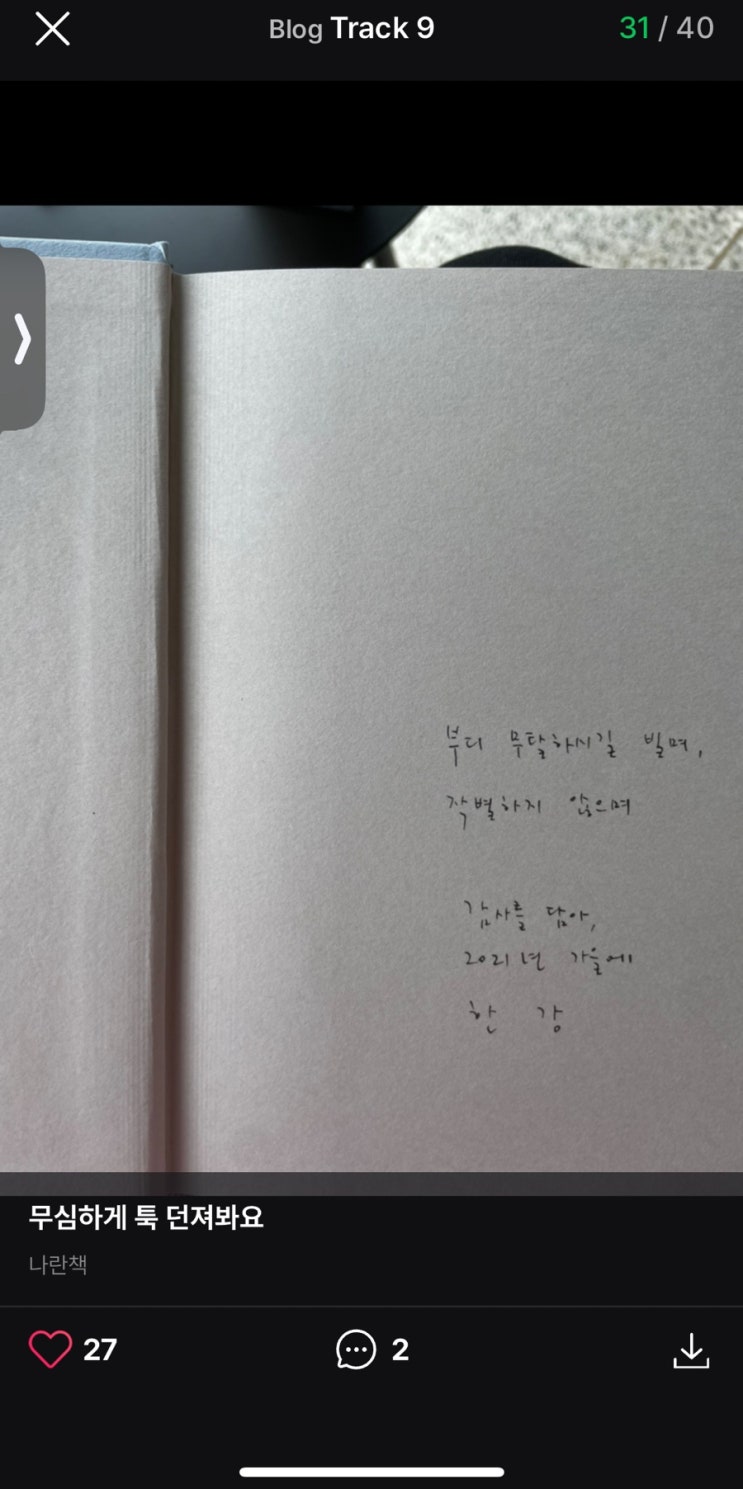 Blog Track 9
31 / 40
부디 무탈하시길 빌며,
작별하지 않으며
감사를 담아,
2021년 가을에
한 강
무심하게 툭 던져봐요
나란책
27
2